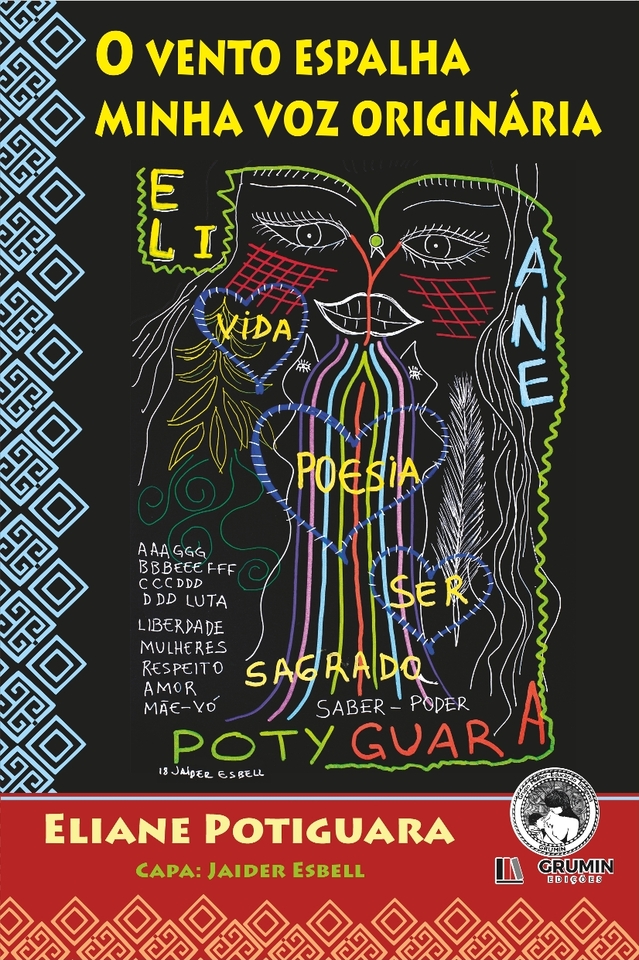 O VENTO ESPALHA
MINHA VOZ ORIGINÁRIA
ELI
ANE
VIDA
POESIA
SER
AAAGGG
BBBEEEFFF
CCCDDD
DDD LUTA
LIBERDADE
MULHERES
RESPEITO
AMOR
MÃE-VÓ
SAGRADO
SABER-PODER
POTYGUARA
18 JAIDER ESBELL
ELIANE POTIGUARA
CAPA: JAIDER ESBELL
GRUMIN
GRUMIN
EDIÇÕES